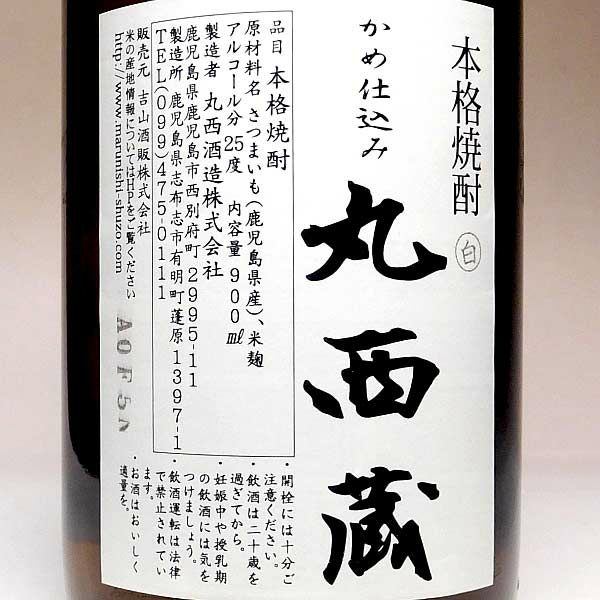 本格焼酎
白
かめ仕込み
丸西蔵
品目 本格焼酎
原材料名 さつまいも(鹿児島県産)、米麹
アルコール分 25度 内容量 900㎖
製造者 丸西酒造株式会社
鹿児島県鹿児島市西別府町2995-11
製造所 鹿児島県志布志市有明町蓬原1397-1
TEL(099)475-0111
販売元 吉山酒販株式会社
米の産地情報についてはHPをご覧ください
http://www.marunishi-shuzo.com
・開栓には十分ご
注意ください。
・飲酒は二十歳を
過ぎてから。
・妊娠中や授乳期
の飲酒には気を
つけましょう。
・飲酒運転は法律
で禁止されてい
ます。
・お酒はおいしく
適量を。